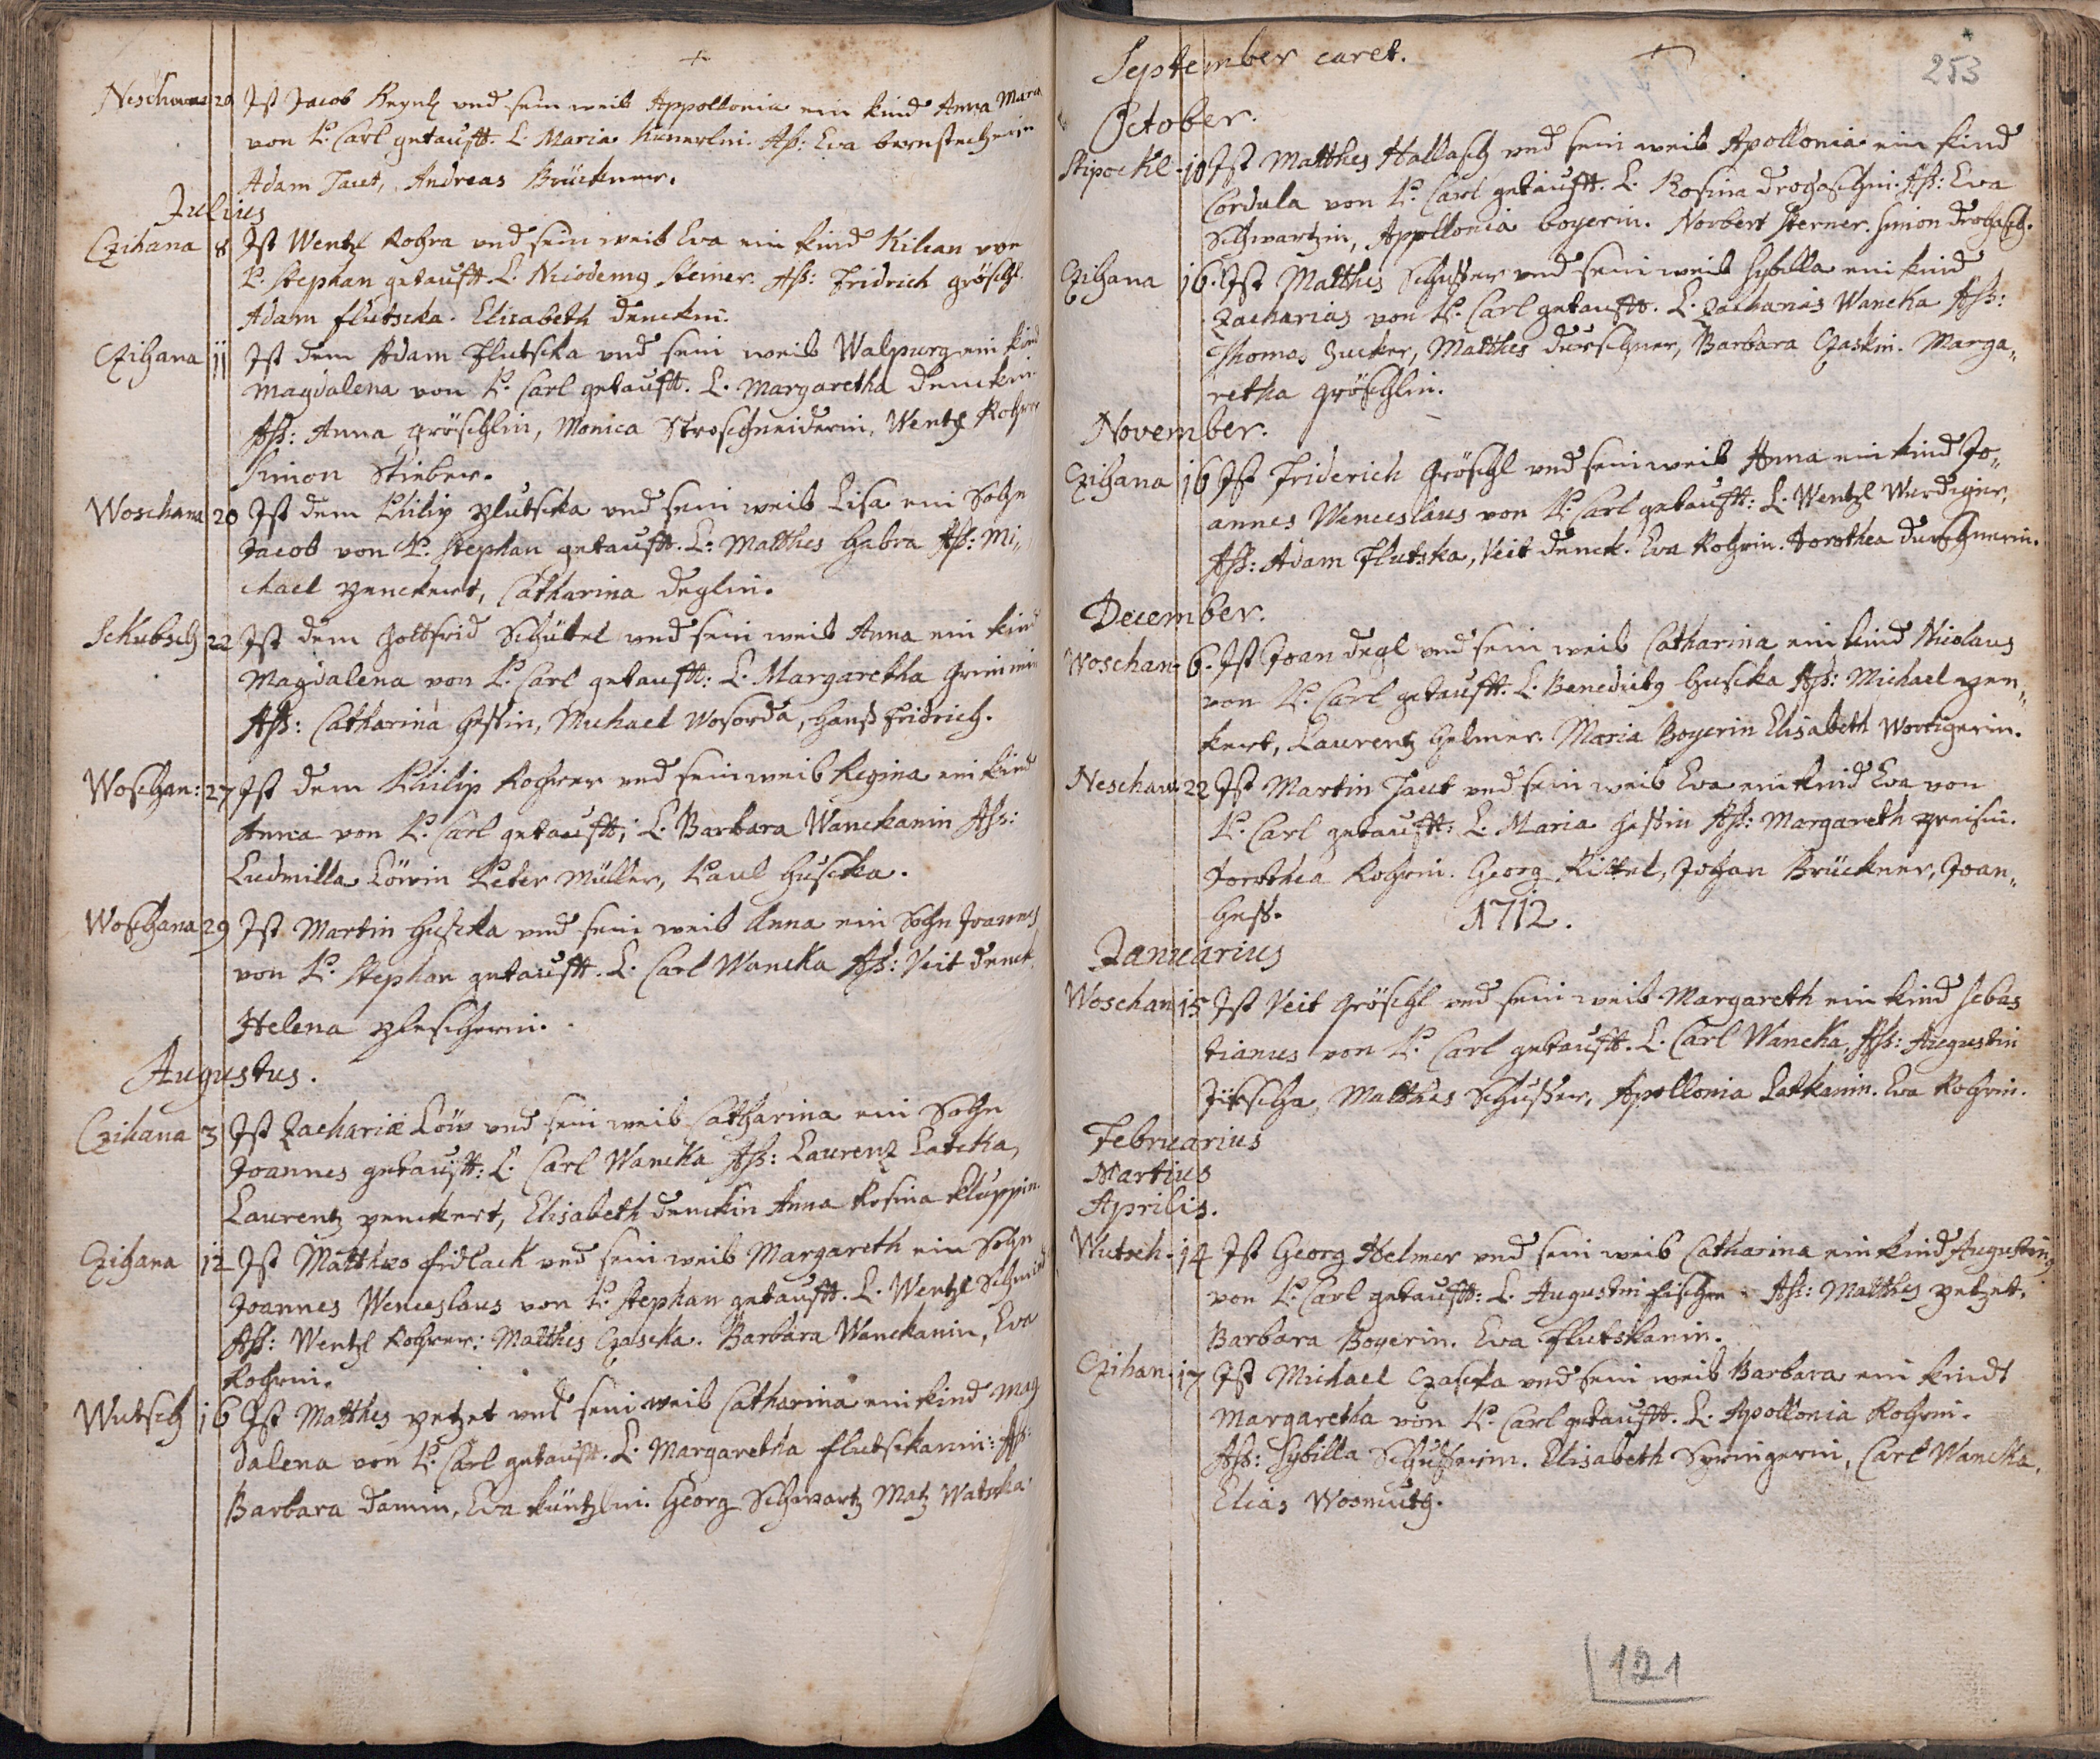 Neschwa 29 Ist Jacob Reguls und sein weib Appollonia ein kind Anna Mara
von P. Carl getaufft. L. Maria Hamerlin. Ass: Eva bernstecherin
Adam Taut, Andreas Brückner.
Julius
Czihana 8 Ist Wentzl Rohra und sein weib Eva ein kind Kilian von
P. Stephan getaufft. L. Nicodemus Steiner. Ass: Fridrich gröschl.
Adam flutscka. Elisabeth denckin.
Czihana 11 Ist dem Adam Flutscka und sein weib Walpurg ein kind
Magdalena von P. Carl getaufft. L. Margaretha denckin
Ass: Anna gröschlin, Monica Stroschneiderin, Wentzl Rohrer
Simon Stieber.
Woschana 20 Ist dem Philip plutscka und sein weib Lisa ein Sohn
Jacob von P. Stephan getaufft. L: Matthes habra Ass: Mi,,
chael penckert, Catharina deglin.
Sckubsch 22 Ist dem Gottfrid Schütel und sein weib Anna ein kind
Magdalena von P. Carl getaufft: L. Margaretha
Ass: Catharina hessin, Michael Wosorda, Hanß fridrich.
Woschan: 27 Ist dem Philip Rohrer und sein weib Regina ein kind
Anna von P. Carl getaufft; L. Barbara Wanckanin Ass:
Ludmilla Löwin Peter Müller, Paul huscka.
Woschana 29 Ist Martin huscka und sein weib Anna ein Sohn Joannes
von P. Stephan getaufft. L. Carl Wancka Ass: Veit denck
Helena plescherin.
Augustus.
Czihana 3 Ist Zachariæ Löw und sein weib Catharina ein Sohn
Joannes getaufft: L. Carl Wancka Ass: Laurenz Latcka,
Laurentz penckert, Elisabeth denckin Anna Rosina kluppin.
Czihana 12 Ist Mattheo fidlack und sein weib Margareth ein Sohn
Joannes Wenceslaus von P. Stephan getaufft. L. Wentzl Schmid
Ass: Wentzl Rohrer: Matthes Czascka. Barbara Wanckanin, Eva
Rohrin.
Wutsch 16 Ist Matthes petzet und sein weib Catharina ein kind Mag
dalena von P. Carl getaufft. L. Margaretha flutsckanin: Ass:
Barbara damin, Eva küntzlin. Georg Schwartz Matz Watscka
September caret.
253
October.
Stipockl. 10 Ist Matthes Hallasch und sein weib Apollonia ein kind
Cordula von P. Carl getaufft. L. Rosina drogaschin. Ass: Eva
Schwartzin, Appollonia boyerin. Norbert Sterner. Simon drogasch.
Czihana 16. Ist Matthes Schusser und sein weib Sybilla ein kind
Zacharias von P. Carl getaufft. L. Zacharias Wancka Ass:
Thomas Zucker, Matthes durschner, Barbara Czaskin. Marga,,
retha gröschlin.
November.
Czihana 16 Ist Friderich Gröschl und sein weib Anna ein kind Jo,,
annes Wenceslaus von P. Carl getaufft: L. Wentzl Wurdiger,
Ass: Adam Flutska, Veit denck. Eva Rohrin. Dorothea durschnerin.
December.
Woschan. 6. Ist Joan degl und sein weib Catharina ein kind Nicolaus
von P. Carl getaufft. L. Benedictus huscka Ass: Michael pen,,
kert, Laurentz helmer Maria Boyerin Elisabeth Wortigerin.
Neschaw. 22 Ist Martin Taut und sein weib Eva ein kind Eva von
P. Carl getaufft: L. Maria hessin Ass: Margareth preisin.
Dorothea Rohrin. Georg Kittel, Johan Brückner, Joan,,
hess. 1712.
Januarius
Woschan. 15 Ist Veit Gröschl und sein weib Margareth ein kind Sebas
tianus von P. Carl getaufft. L. Carl Wancka, Ass: Augustin
Jirscha, Matthes Schusser, Apollonia Latkanin. Eva Rohrin.
Februarius
Martius
Aprilis.
Wutsch. 14 Ist Georg Helmer und sein weib Catharina ein kind Augustinus
von P. Carl getaufft: L. Augustin fischer Ass: Matthes petzet.
Barbara Boyerin. Eva Flutskanin.
Czihan. 17 Ist Michael Czascka und sein weib Barbara ein kindt
Margaretha von P. Carl getaufft. L. Apollonia Rohrin.
Ass: Sybilla Schusserin. Elisabeth Springerin, Carl Wancka.
Elias Wosmuth.
121